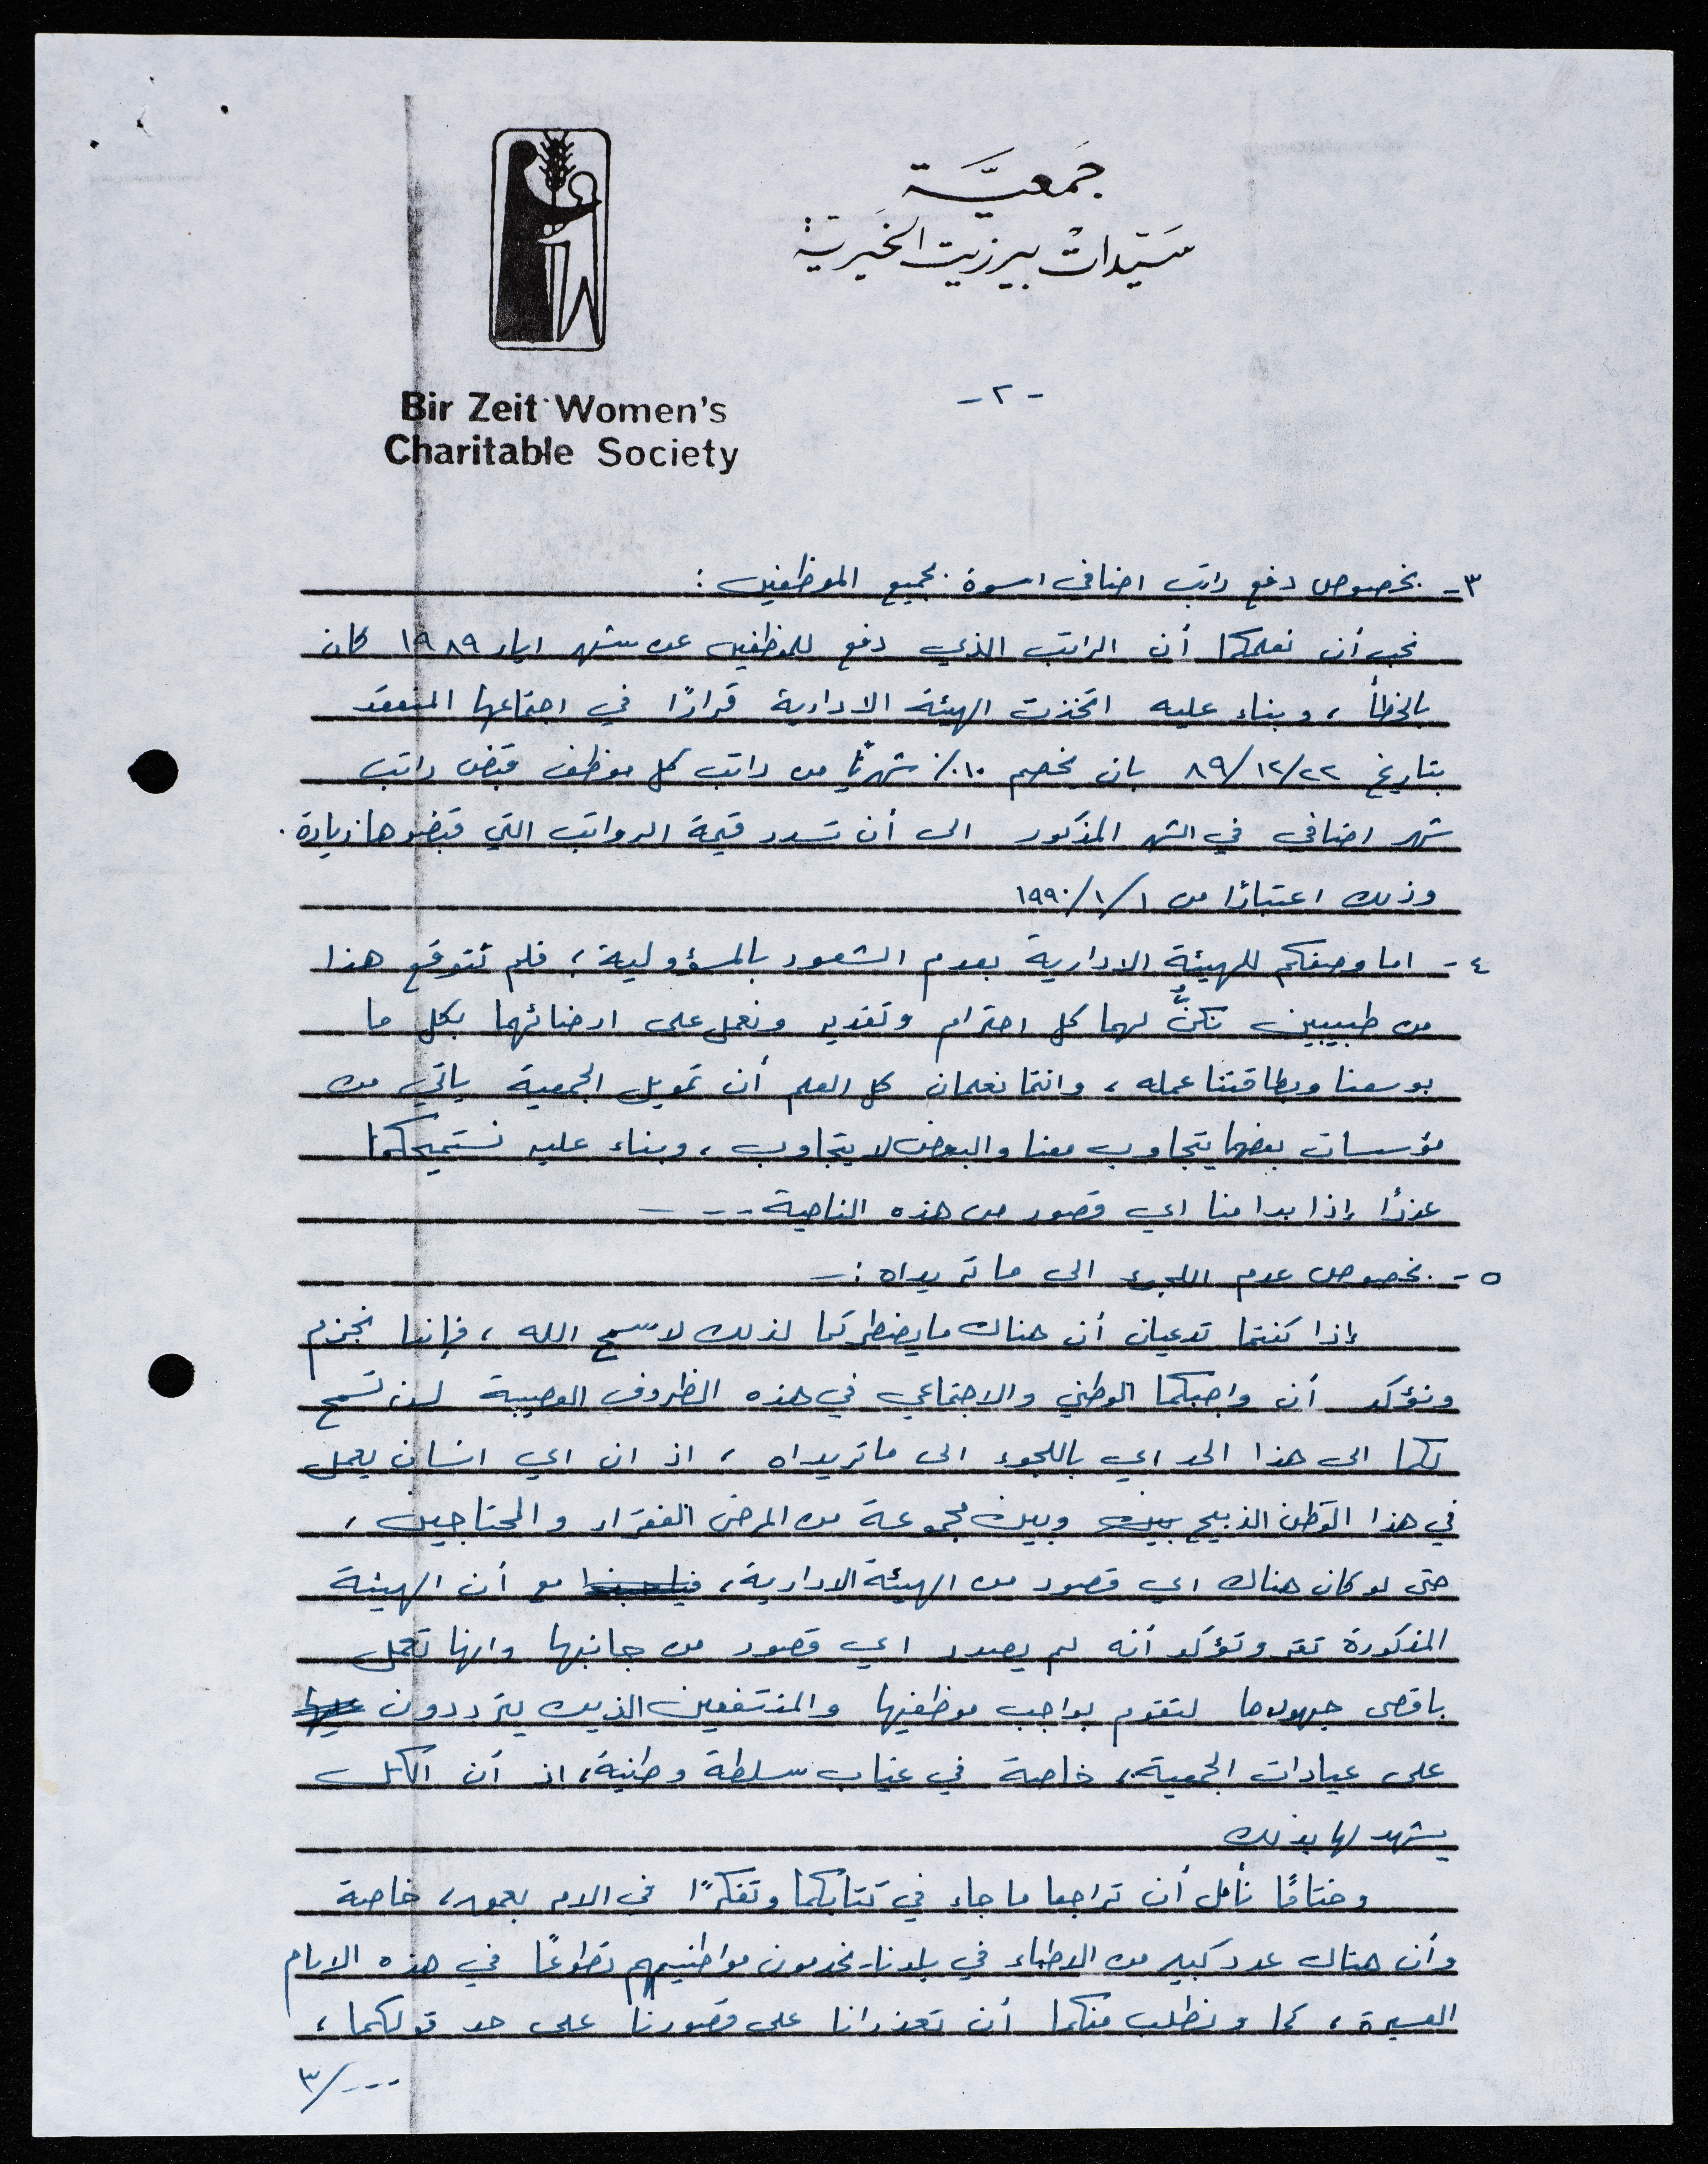 جمعية
سيدات بيرزيت الخيرية
Bir Zeit Women's
Charitable Society
-٢-
٣- بخصوص دفع راتب اضافي اسوة بجميع الموظفين :
نحب أن نعلمكما أن الراتب الذي دفع للموظفين عن شهر ايار ١٩٨٩ كان
بالخطأ ، وبناء عليه اتخذت الهيئة الادارية قرارًا في اجتماعها المنعقد
بتاريخ ٨٩/١٢/٢٢ بان يخصم ١٠٪ شهريًا من راتب كل موظف قبض راتب
شهر اضافي في الشهر المذكور الى أن تسدد قيمة الرواتب التي قبضوها زيادة .
وذلك اعتبارًا من ١٩٩٠/١/١
٤- اما وصفكم للهيئة الادارية بعدم الشعور بالمسؤولية ، فلم نتوقع هذا
من طبيبين نكنُّ لهما كل احترام وتقدير ونعمل على ارضائهما بكل ما
بوسعنا وبطاقتنا عمله ، وانتما تعلمان كل العلم أن تمويل الجمعية ياتي من
مؤسسات بعضها يتجاوب معنا والبعض لا يتجاوب ، وبناء عليه نستميحكما
عذرًا إذا بدا منا اي قصور من هذه الناحية ---
٥- بخصوص عدم اللجوء الى ما تريداه :-
إذا كنتما تدعيان أن هناك ما يضطركما لذلك لا سمح الله ، فإننا نجزم
ونؤكد أن واجبكما الوطني والاجتماعي في هذه الظروف العصيبة لن تسمح
لكما الى هذا الحد اي باللجوء الى ما تريداه ، اذ ان اي انسان يعمل
في هذا الوطن الذبيح بينه وبين مجموعة من المرضى الفقراء والمحتاجين ،
حتى لو كان هناك اي قصور من الهيئة الادارية ، مع أن الهيئة
المذكورة تقر وتؤكد أنه لم يصدر اي قصور من جانبها وانها تعمل
باقصى جهودها لتقوم بواجب موظفيها والمنتفعين الذين يترددون
على عيادات الجمعية ، خاصة في غياب سلطة وطنية ، اذ أن الكل
يشهد لها بذلك
وختامًا نأمل أن تراجعا ما جاء في كتابكما وتفكرًا في الامر بعمق ، خاصة
وأن هناك عدد كبير من الاطباء في بلدنا يخدمون مواطنيهم تطوعًا في هذه الايام
العسيرة ، كما ونطلب منكما أن تعذرانا على قصورنا على حد قولكما ،
٣/---